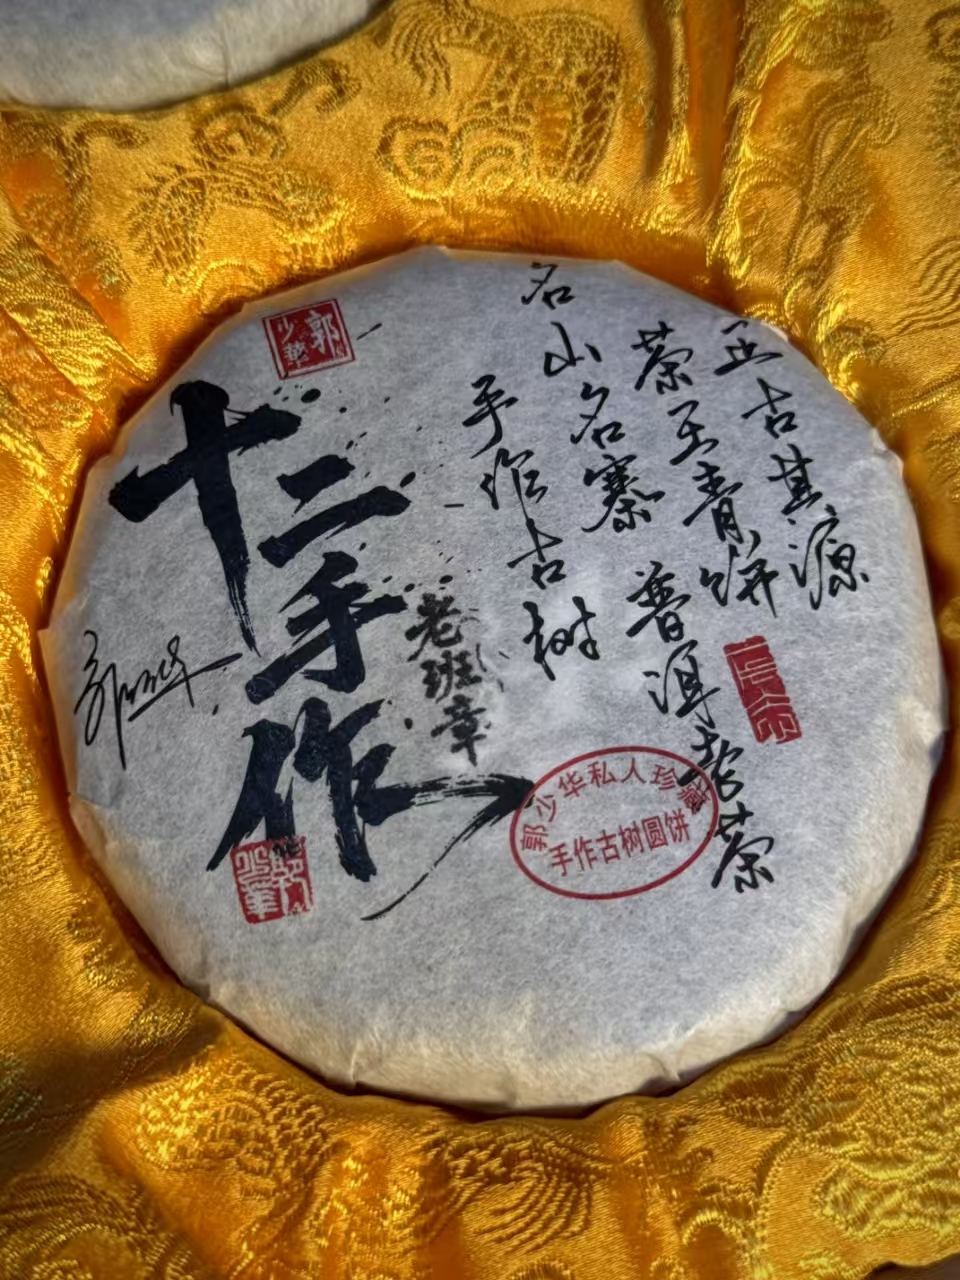 正古其源
茶王青饼
普洱老茶
名山名寨
手作古树
老班章
十二手作
郭少华
郭少华私人珍藏
手作古树圆饼